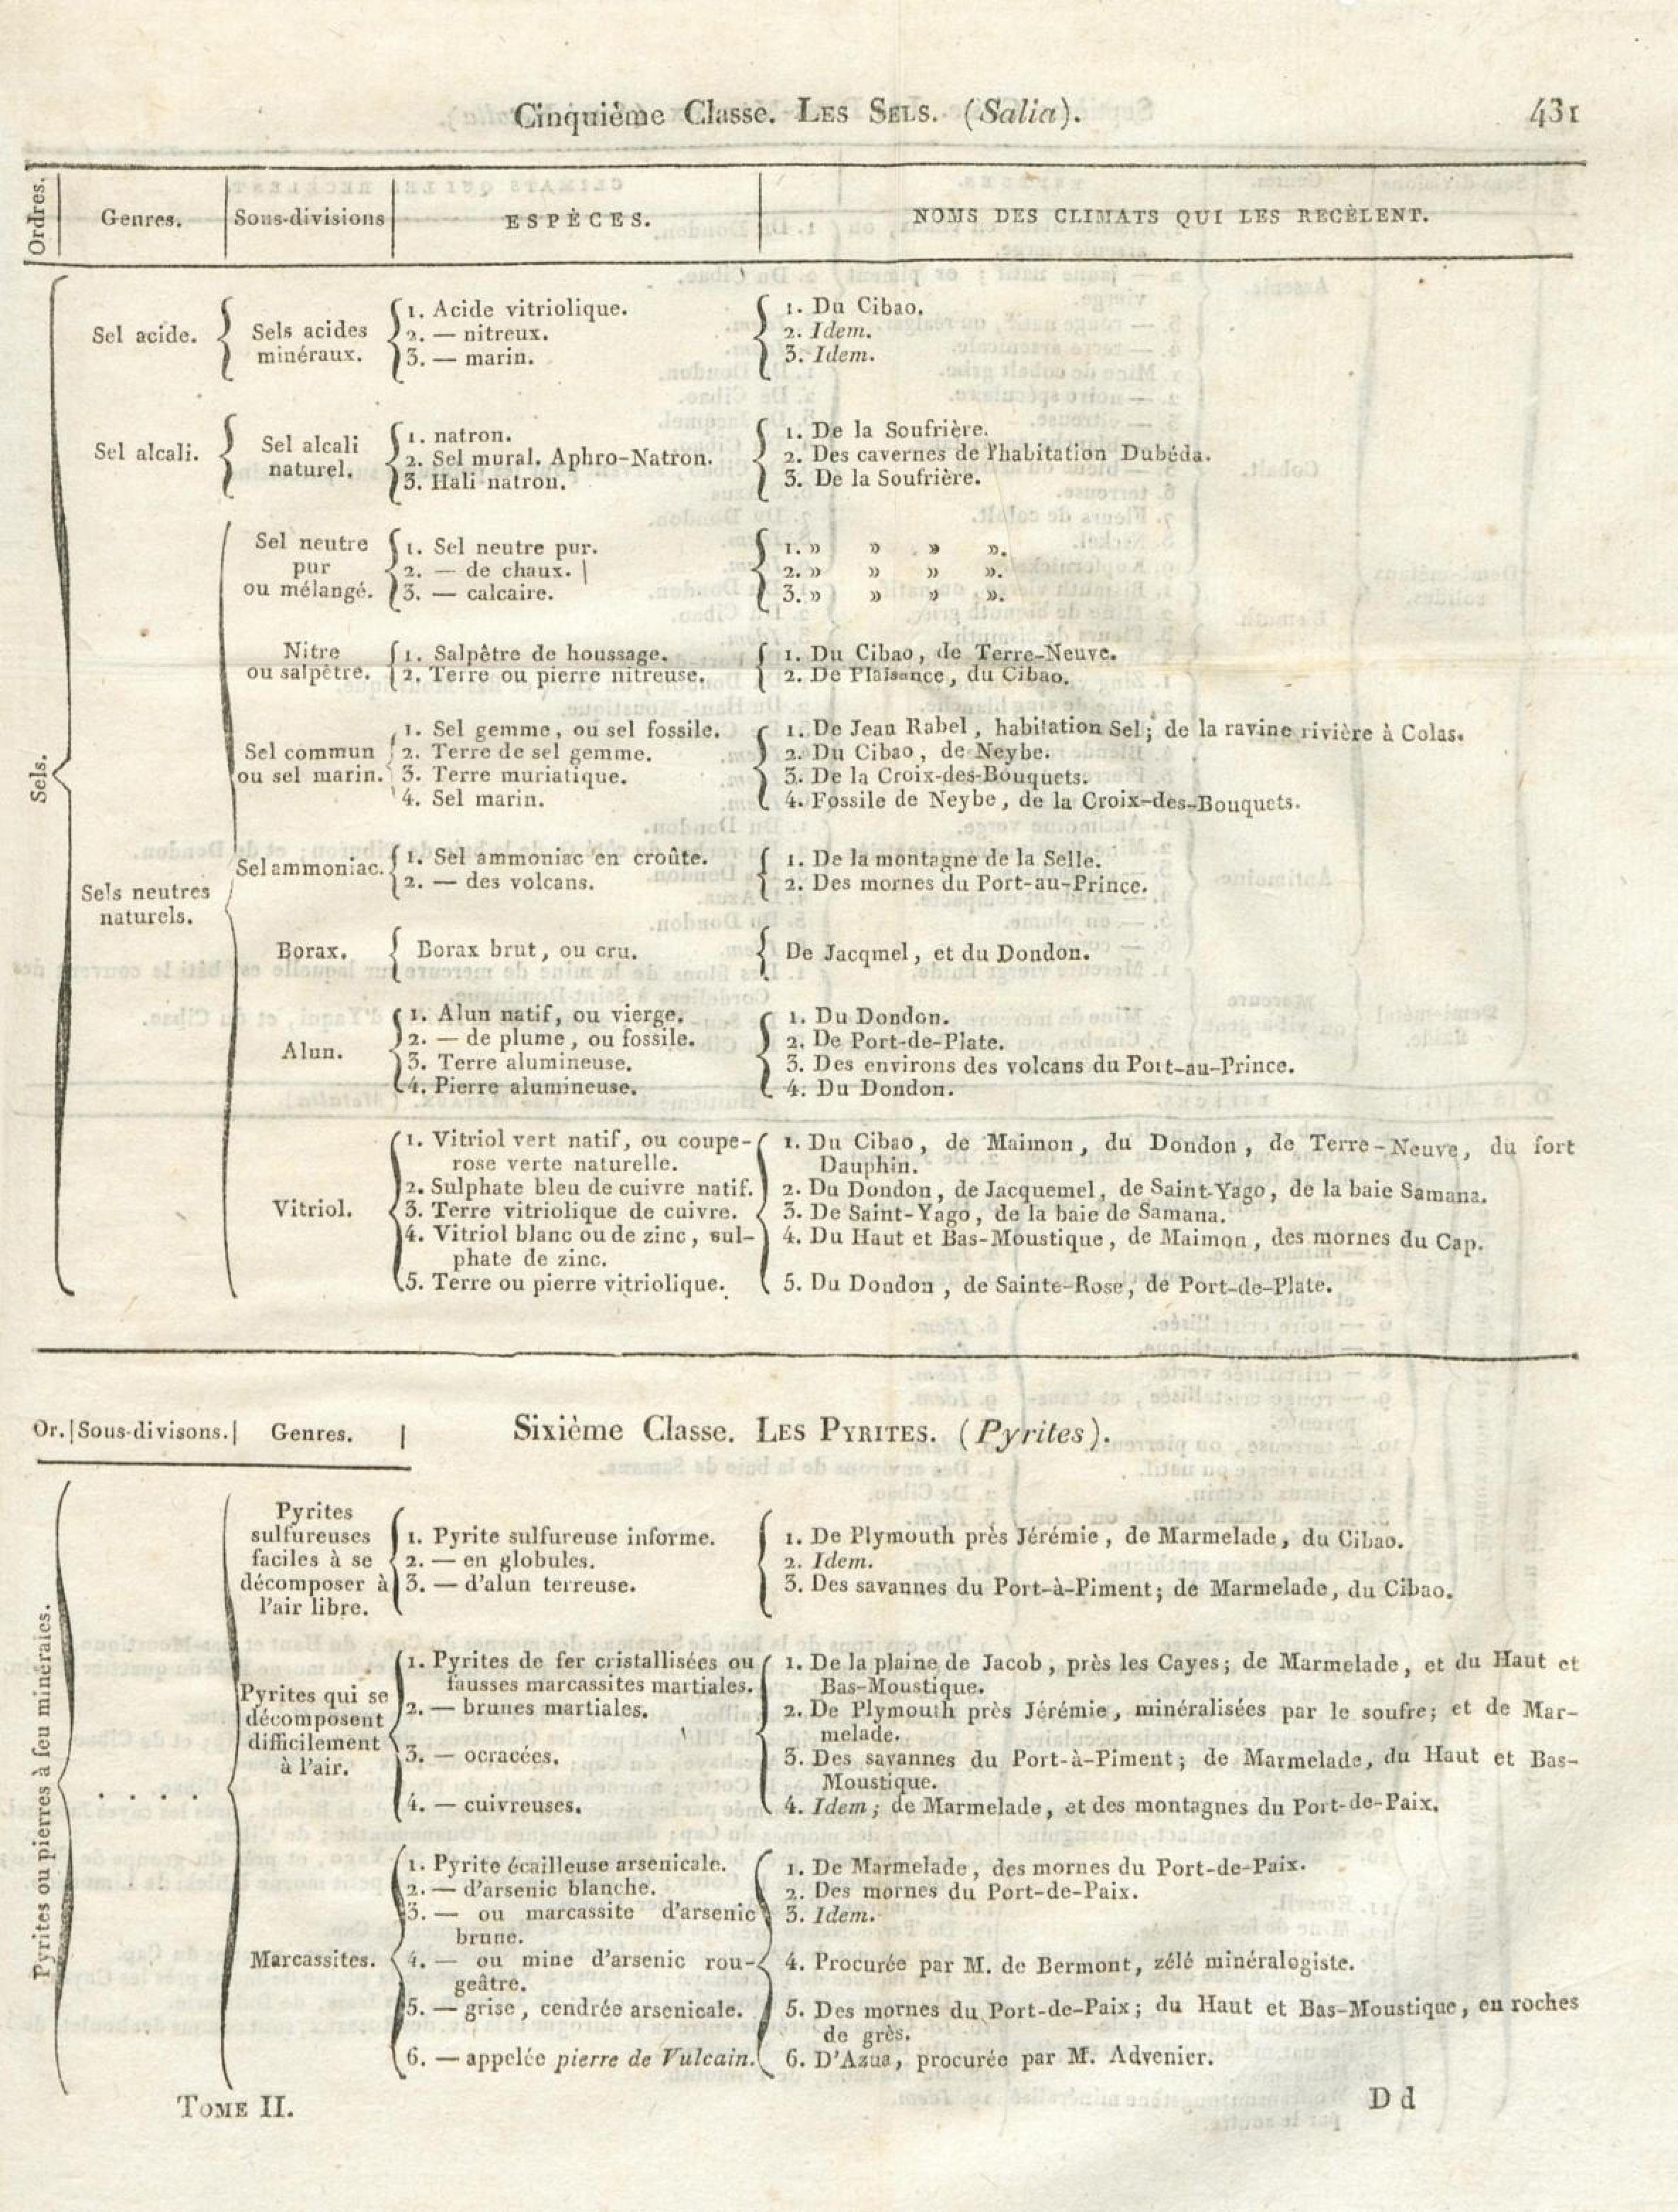 Cinquième Classe. LES SELS. (Salia). 431
Ordres. Genres. Sous-divisions ESPÈCES. NOMS DES CLIMATS QUI LES RECÈLENT.
Sels.
Sel acide.
Sels acides
minéraux.
1. Acide vitriolique. 1. Du Cibao.
2. — nitreux. 2. Idem.
3. — marin. 3. Idem.
Sel alcali.
Sel alcali
naturel.
1. natron. 1. De la Soufrière.
2. Sel mural. Aphro-Natron. 2. Des cavernes de l'habitation Dubéda.
3. Hali natron. 3. De la Soufrière.
Sels neutres
naturels.
Sel neutre
pur
ou mélangé.
1. Sel neutre pur. 1. » » » ».
2. — de chaux. 2. » » » ».
3. — calcaire. 3. » » » ».
Nitre
ou salpêtre.
1. Salpêtre de houssage. 1. Du Cibao, de Terre-Neuve.
2. Terre ou pierre nitreuse. 2. De Plaisance, du Cibao.
Sel commun
ou sel marin.
1. Sel gemme, ou sel fossile. 1. De Jean Rabel, habitation Sel; de la ravine rivière à Colas.
2. Terre de sel gemme. 2. Du Cibao, de Neybe.
3. Terre muriatique. 3. De la Croix-des-Bouquets.
4. Sel marin. 4. Fossile de Neybe, de la Croix-des-Bouquets.
Sel ammoniac.
1. Sel ammoniac en croûte. 1. De la montagne de la Selle.
2. — des volcans. 2. Des mornes du Port-au-Prince.
Borax. Borax brut, ou cru. De Jacqmel, et du Dondon.
Alun.
1. Alun natif, ou vierge. 1. Du Dondon.
2. — de plume, ou fossile. 2. De Port-de-Plate.
3. Terre alumineuse. 3. Des environs des volcans du Port-au-Prince.
4. Pierre alumineuse. 4. Du Dondon.
Vitriol.
1. Vitriol vert natif, ou coupe- 1. Du Cibao, de Maimon, du Dondon, de Terre-Neuve, du fort
rose verte naturelle. Dauphin.
2. Sulphate bleu de cuivre natif. 2. Du Dondon, de Jacquemel, de Saint-Yago, de la baie Samana.
3. Terre vitriolique de cuivre. 3. De Saint-Yago, de la baie de Samana.
4. Vitriol blanc ou de zinc, sul- 4. Du Haut et Bas-Moustique, de Maimon, des mornes du Cap.
phate de zinc.
5. Terre ou pierre vitriolique. 5. Du Dondon, de Sainte-Rose, de Port-de-Plate.
Or. Sous-divisons. Genres. Sixième Classe. LES PYRITES. (Pyrites).
Pyrites ou pierres à feu minérales.
Pyrites
sulfureuses
faciles à se
décomposer à
l'air libre.
1. Pyrite sulfureuse informe. 1. De Plymouth près Jérémie, de Marmelade, du Cibao.
2. — en globules. 2. Idem.
3. — d'alun terreuse. 3. Des savannes du Port-à-Piment; de Marmelade, du Cibao.
. . . .
Pyrites qui se
décomposent
difficilement
à l'air.
1. Pyrites de fer cristallisées ou 1. De la plaine de Jacob, près les Cayes; de Marmelade, et du Haut et
fausses marcassites martiales. Bas-Moustique.
2. — brunes martiales. 2. De Plymouth près Jérémie, minéralisées par le soufre; et de Mar-
melade.
3. — ocracées. 3. Des savannes du Port-à-Piment; de Marmelade, du Haut et Bas-
Moustique.
4. — cuivreuses. 4. Idem; de Marmelade, et des montagnes du Port-de-Paix.
Marcassites.
1. Pyrite écailleuse arsenicale. 1. De Marmelade, des mornes du Port-de-Paix.
2. — d'arsenic blanche. 2. Des mornes du Port-de-Paix.
3. — ou marcassite d'arsenic 3. Idem.
brune.
4. — ou mine d'arsenic rou- 4. Procurée par M. de Bermont, zélé minéralogiste.
geâtre.
5. — grise, cendrée arsenicale. 5. Des mornes du Port-de-Paix; du Haut et Bas-Moustique, en roches
de grès.
6. — appelée pierre de Vulcain. 6. D'Azua, procurée par M. Advenier.
TOME II. D d